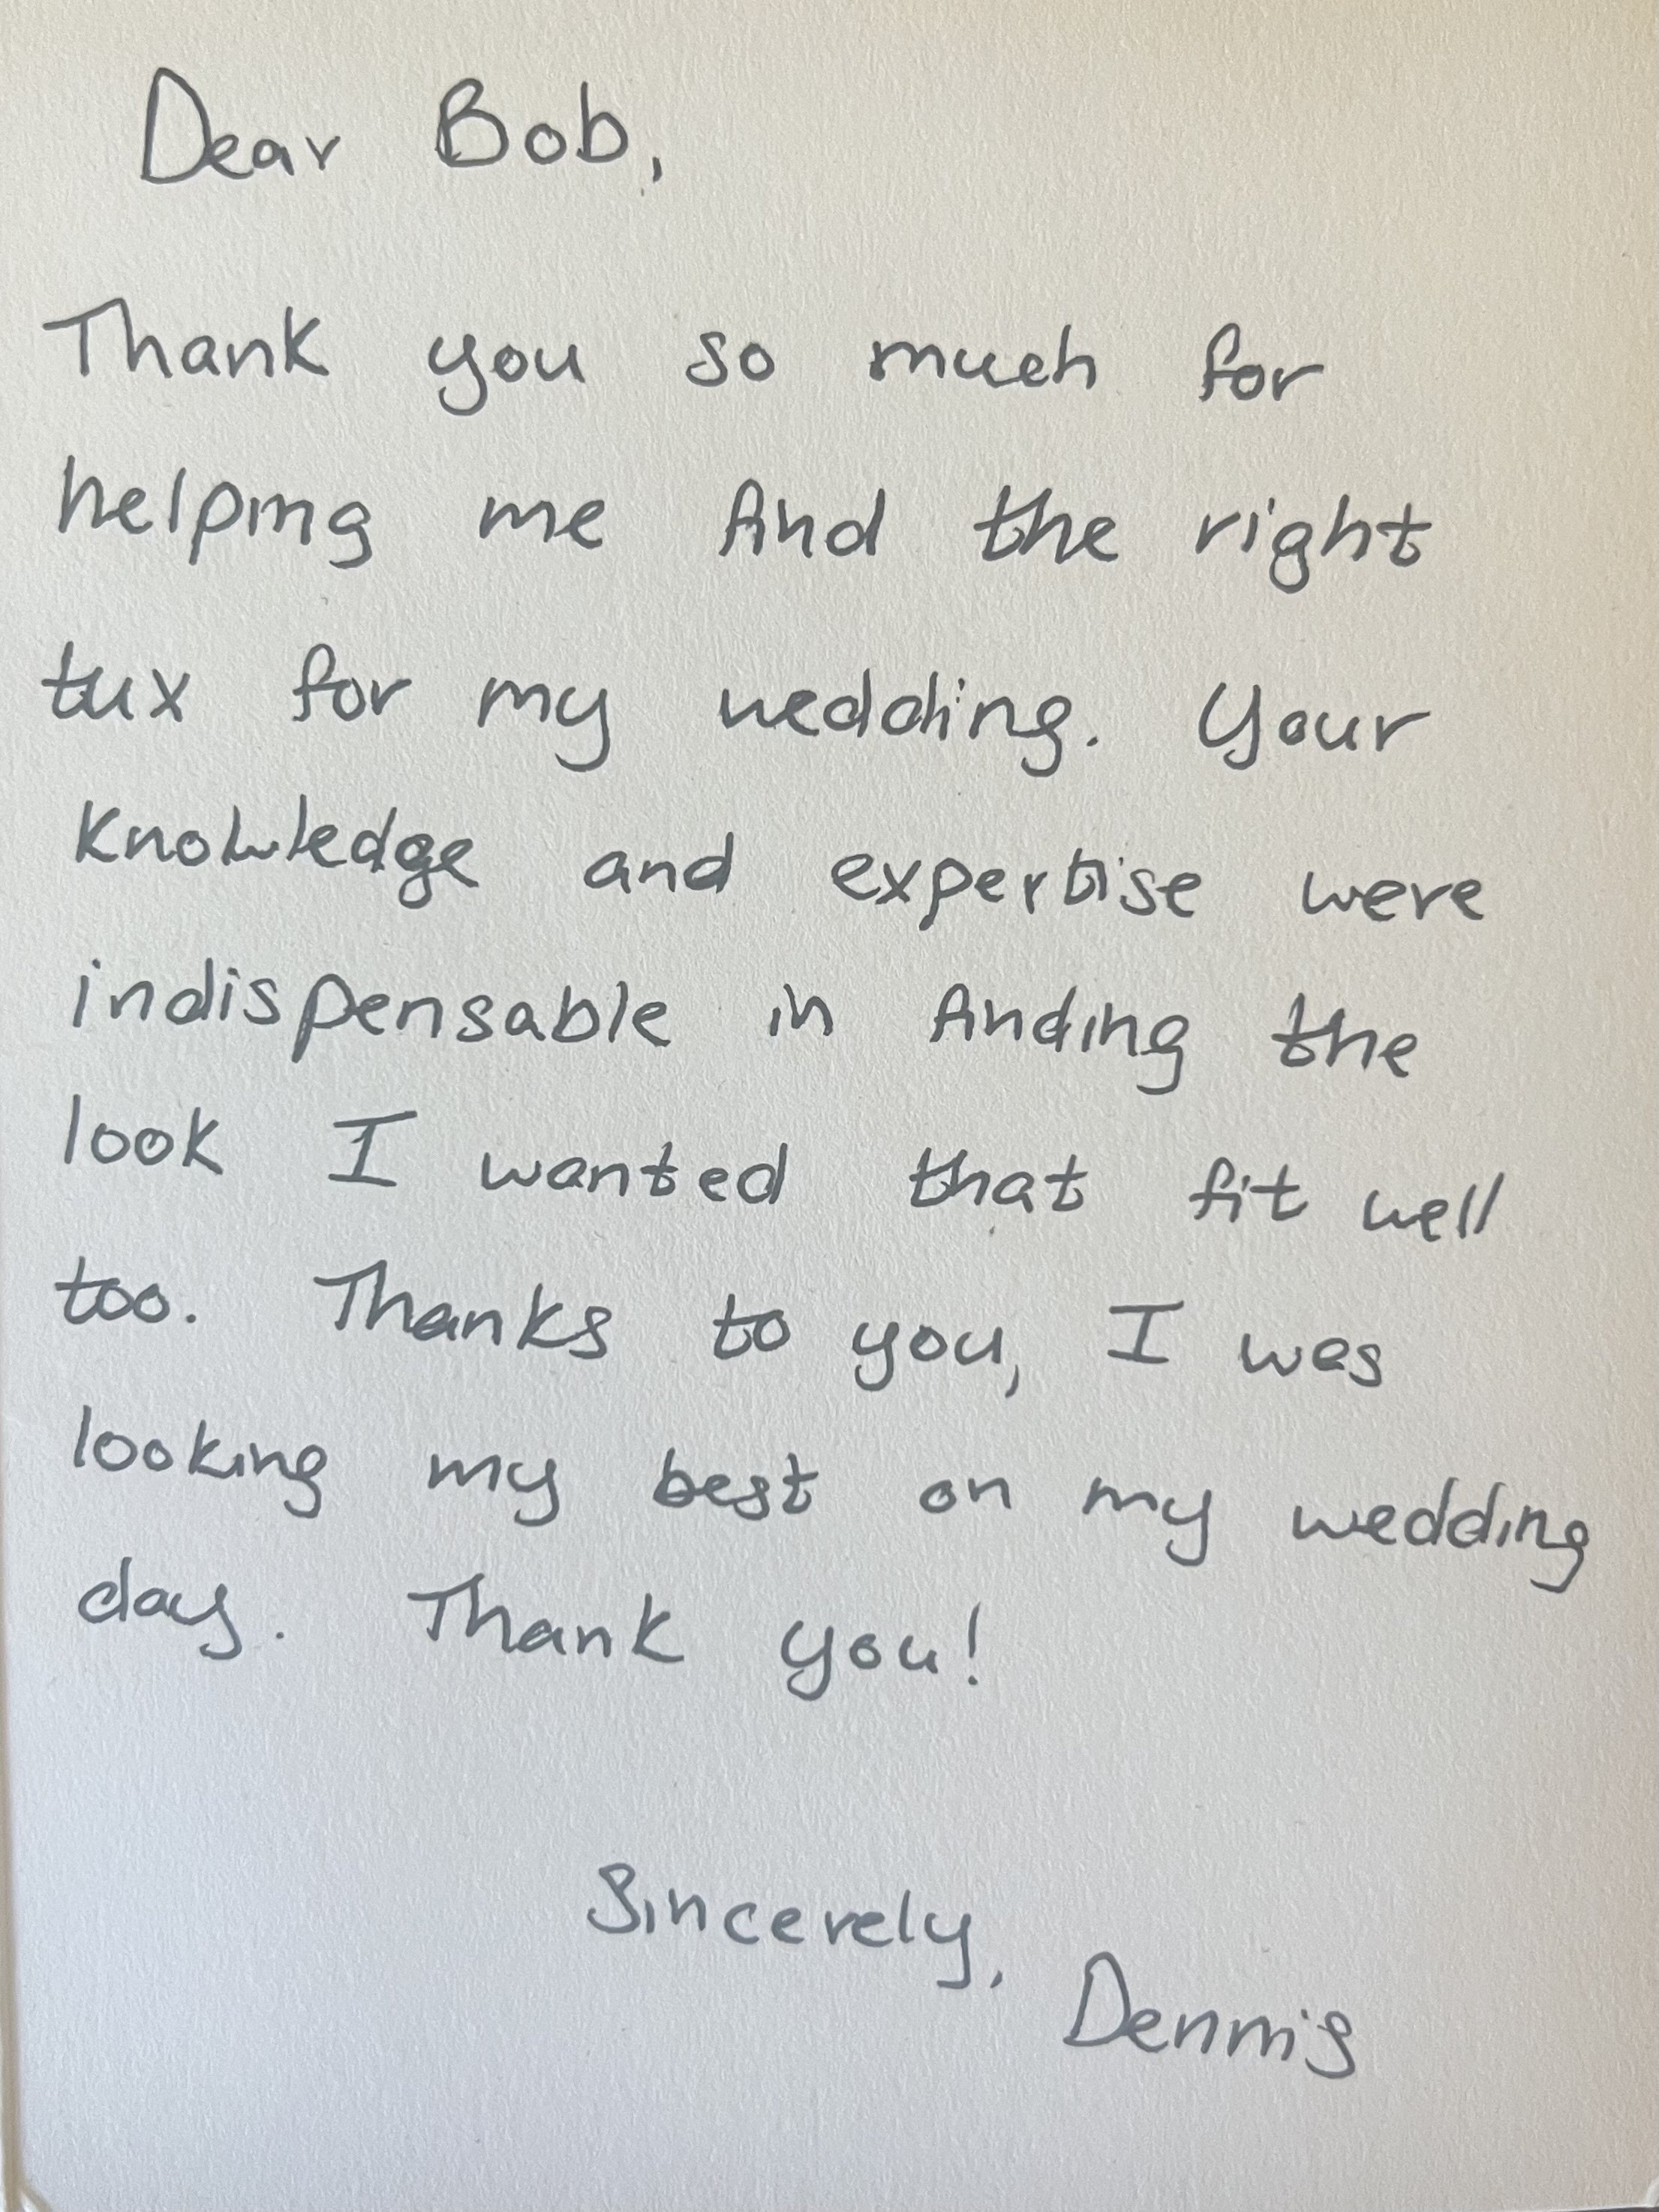 Dear Bob,
Thank you so much for
helping me find the right
tux for my wedding. Your
knowledge and expertise were
indispensable in finding the
look I wanted that fit well
too. Thanks to you, I was
looking my best on my wedding
day. Thank you!
Sincerely,
Dennis